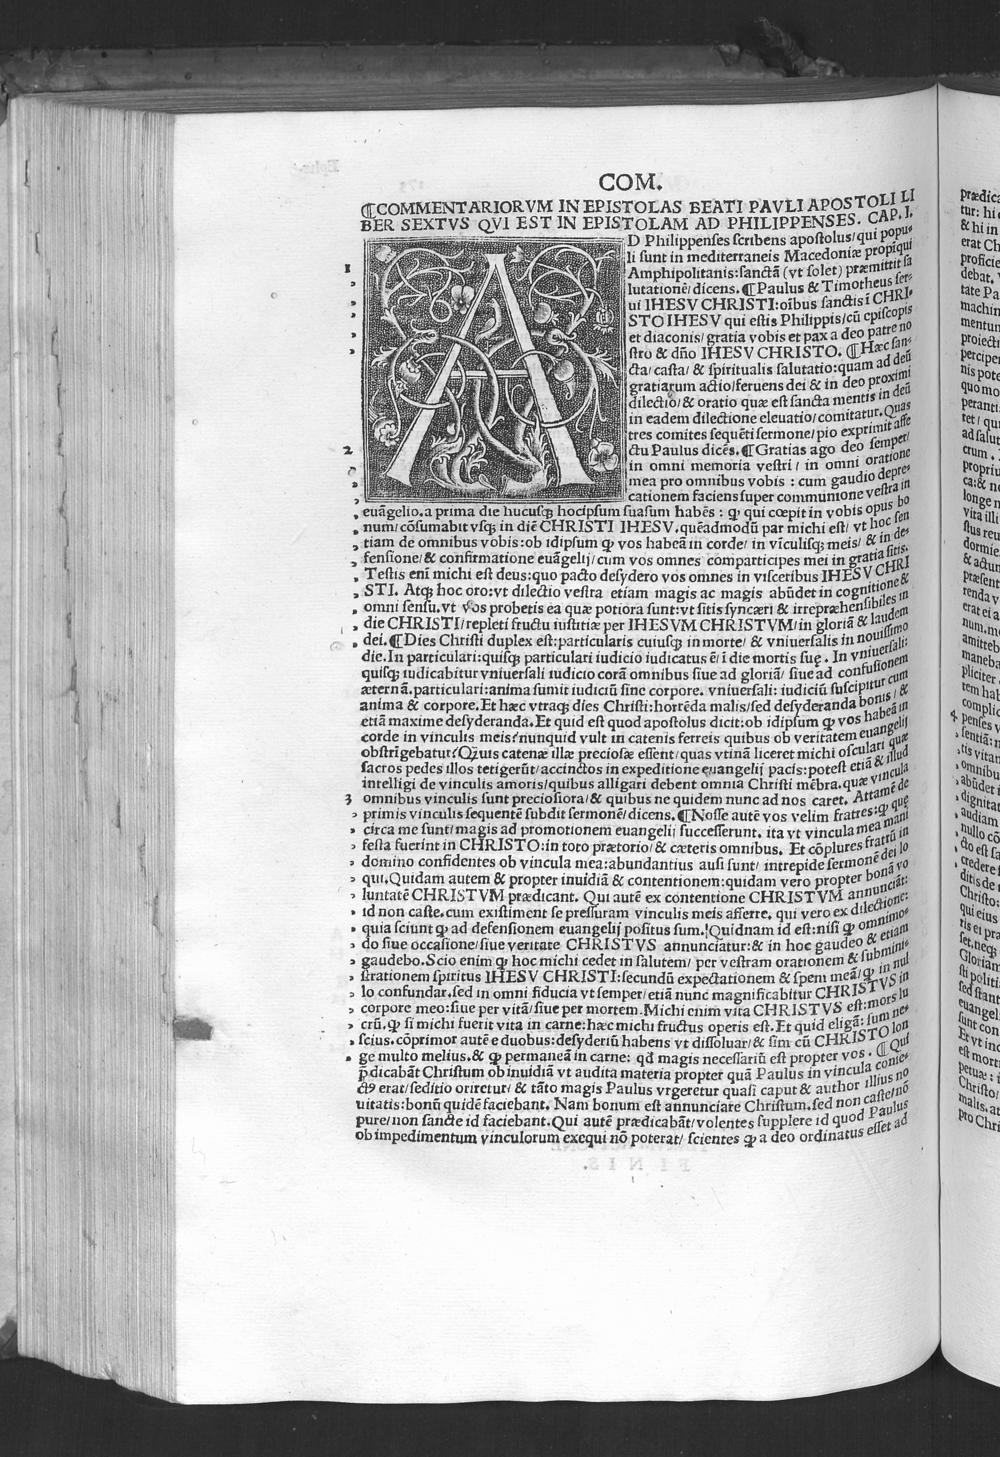 COM.
⁋COMMENTARIORVM IN EPISTOLAS BEATI PAVLI APOSTOLI LI
BER SEXTVS QVI EST IN EPISTOLAM AD PHILIPPENSES. CAP. I.
AD Philippenses scribens apostolus/ qui popu-
li sunt in mediterraneis Macedoniæ propĩqui
1 Amphipolitanis: sanctã (vt solet) præmittit sa
lutationẽ/ dicens. ⁋Paulus & Timotheus ser-
ui IHESV CHRISTI: oĩbus sanctis ĩ CHRI-
STO IHESV qui estis Philippis/ cũ episcopis
et diaconis/ gratia vobis et pax a deo patre no
stro & dño IHESV CHRISTO. ⁋Hæc san-
cta/ casta/ & spiritualis salutatio: quam ad deũ
gratiarum actio/ feruens dei & in deo proximi
dilectio/ & oratio quæ est sancta mentis in deũ
in eadem dilectione eleuatio/ comitatur. Quas
tres comites sequẽti sermone/ pio exprimit affe
2 ctu Paulus dicẽs. ⁋Gratias ago deo semper/
in omni memoria vestri/ in omni oratione
mea pro omnibus vobis : cum gaudio depre-
cationem faciens super communione vestra in
euãgelio. a prima die hucusq; hocipsum suasum habẽs : ꝙ qui cœpit in vobis opus bo
num/ cõsumabit vsq; in diẽ CHRISTI IHESV. quẽadmodũ par michi est/ vt hoc sen
tiam de omnibus vobis: ob idipsum ꝙ vos habeã in corde/ in vĩculisq; meis/ & in de-
fensione/ & confirmatione euãgelij/ cum vos omnes comparticipes mei in gratia sitis.
Testis eni michi est deus: quo pacto desydero vos omnes in visceribus IHESV CHRI
STI. Atq; hoc oro: vt dilectio vestra etiam magis ac magis abũdet in cognitione &
omni sensu. vt vos probetis ea quæ potiora sunt: vt sitis synceri & irrepræhensibiles in
die CHRISTI/ repleti fructu iustitiæ per IHESVM CHRISTVM/ in gloriã & laudem
dei. ⁋Dies Christi duplex est: particularis cuiusq; in morte/ & vniuersalis in nouissimo
die. In particulari: quisq; particulari iudicio iudicatus ẽ/ ĩ die mortis suę. In vniuersali:
quisq; iudicabitur vniuersali iudicio corã omnibus siue ad gloriã/ siue ad confusionem
æternã. particulari: anima sumit iudiciũ sine corpore. vniuersali: iudiciũ suscipitur cum
anima & corpore. Et hæc vtraq; dies Christi: horrẽda malis/ sed desyderanda bonis/ &
etiã maxime desyderanda. Et quid est quod apostolus dicit: ob idipsum ꝙ vos habeã in
corde in vinculis meis? nunquid vult in catenis ferreis quibus ob veritatem euangelij
obstrĩgebatur? Qȝuis catenæ illæ preciosæ essent/ quas vtinã liceret michi osculari quæ
sacros pedes illos tetigerũt/ accinctos in expeditione euangelij pacis: potest etiã & illud
intelligi de vinculis amoris/ quibus alligari debent omnia Christi mẽbra. quæ vincula
3 omnibus vinculis sunt preciosiora/ & quibus ne quidem nunc ad nos caret. Attamẽ de
primis vinculis sequentẽ subdit sermonẽ/ dicens. ⁋Nosse autẽ vos velim fratres: ꝙ quę
circa me sunt/ magis ad promotionem euangelij successerunt. ita vt vincula mea mani
festa fuerint in CHRISTO: in toto prætorio/ & cæteris omnibus. Et cõplures fratrũ in
domino confidentes ob vincula mea: abundantius ausi sunt/ intrepide sermonẽ dei lo
qui. Quidam autem & propter inuidiã & contentionem: quidam vero propter bonã vo
luntatẽ CHRISTVM prædicant. Qui autẽ ex contentione CHRISTVM annunciãt:
id non caste. cum existiment se pressuram vinculis meis afferre. qui vero ex dilectione:
quia sciunt ꝙ ad defensionem euangelij positus sum. Quidnam id est: nisi ꝙ omnimo-
do siue occasione/ siue veritate CHRISTVS annunciatur: & in hoc gaudeo & etiam
gaudebo. Scio enim ꝙ hoc michi cedet in salutem/ per vestram orationem & submini-
strationem spiritus IHESV CHRISTI: secundũ expectationem & spem meã/ ꝙ in nul
lo confundar. sed in omni fiducia vt semper/ etiã nunc magnificabitur CHRISTVS in
corpore meo: siue per vitã/ siue per mortem. Michi enim vita CHRISTVS est: mors lu
crũ. ꝙ si michi fuerit vita in carne: hæc michi fructus operis est. Et quid eligã: sum ne-
scius. cõprimor autẽ e duobus: desyderiũ habens vt dissoluar/ & sim cũ CHRISTO lon
ge multo melius. & ꝙ permaneã in carne: qđ magis necessariũ est propter vos. ⁋Qui
p̃dicabãt Christum ob inuidiã vt audita materia propter quã Paulus in vincula conie-
ctꝰ erat/ seditio oriretur/ & tãto magis Paulus vrgeretur quasi caput & author illius no
uitatis: bonũ quidẽ faciebant. Nam bonum est annunciare Christum. sed non caste/ nõ
pure/ non sancte id faciebant. Qui autẽ prædicabãt/ volentes supplere id quod Paulus
ob impedimentum vinculorum exequi nõ poterat/ scientes ꝙ a deo ordinatus esset ad